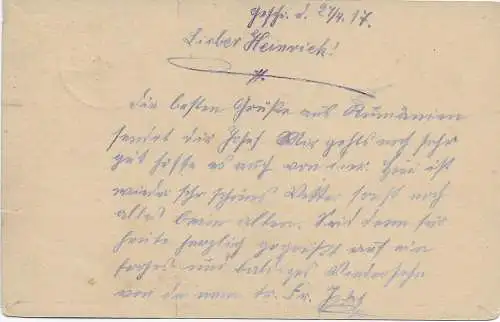 Geschr. d. 21/4.17.
Lieber Heinrich!
Die besten Grüße aus Rumänien
sendet dir Josef Mir gehts noch sehr
gut hoffe es auch von dir. Hier ist
wieder sehr schönes Wetter sonst noch
alles beim alten. Seid denn für
heute herzlich gegrüßt auf ein
frohes und baldiges Wiedersehn
von